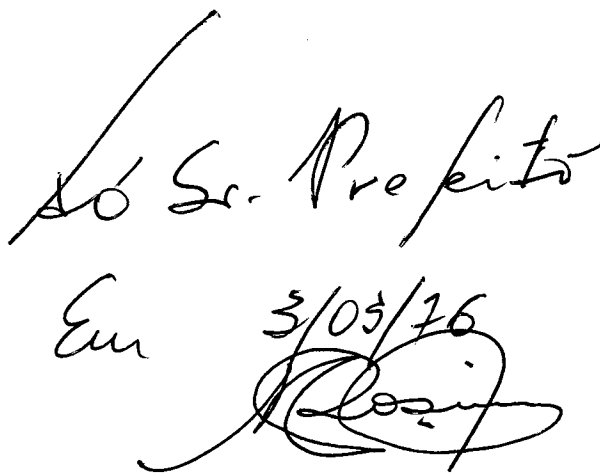 Aó Sr. Prefeitô
Em 3/03/76